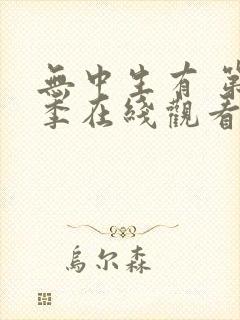 無中生有 第
季在綫觀看
烏尔森